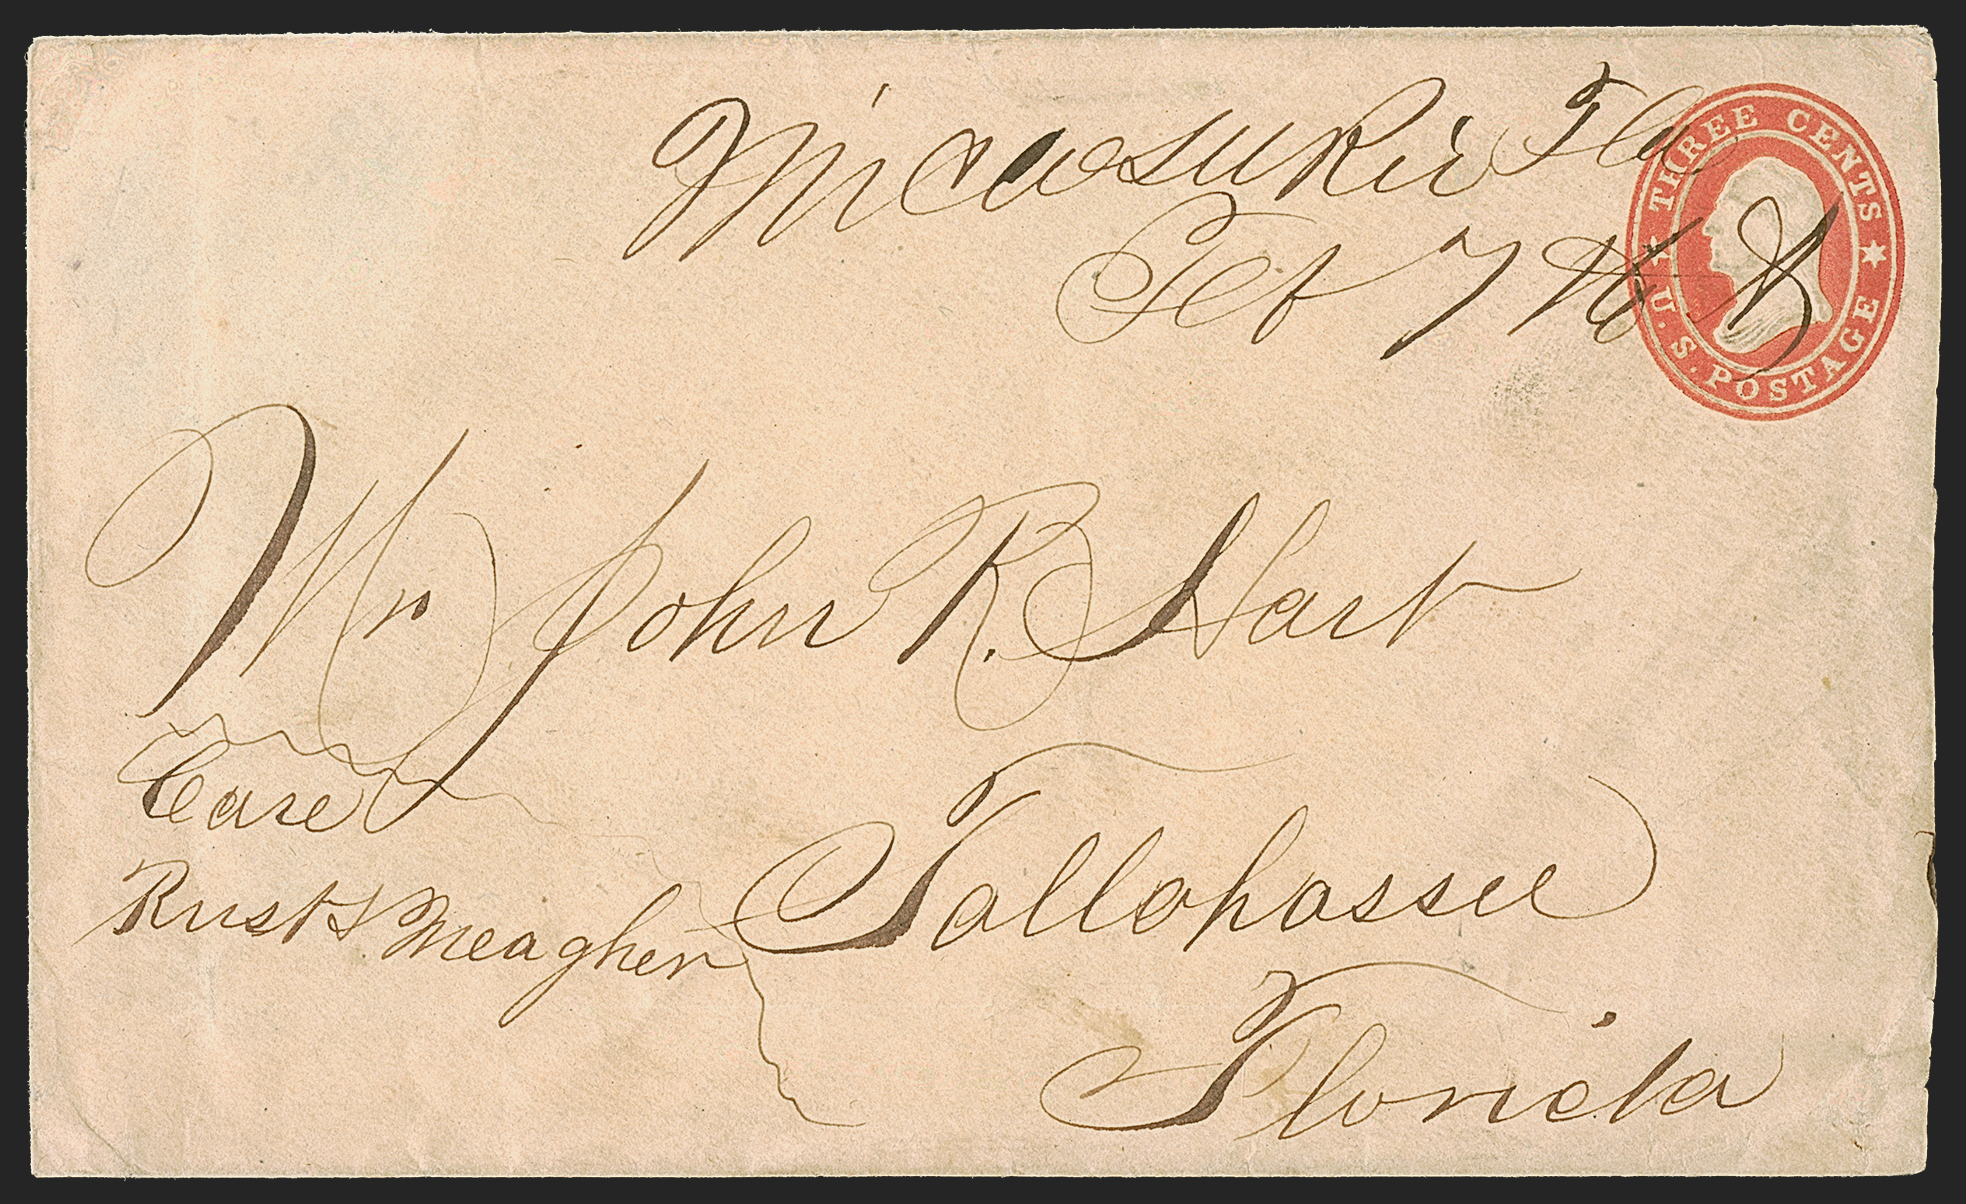 Micasukie Fla
Feb 7th
THREE CENTS
U.S. POSTAGE
Mr John R. Hart
Care
Rust & Meagher
Tallahassee
Florida